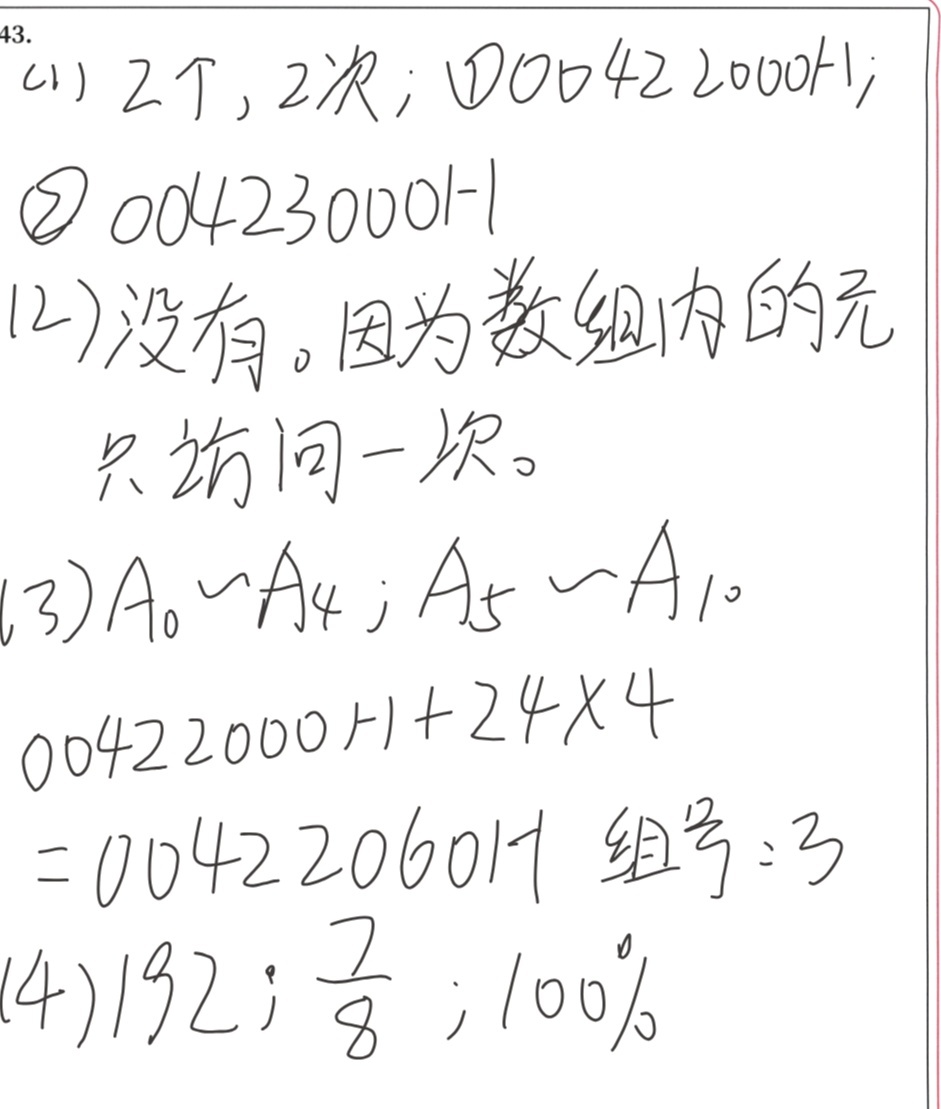 43.
(1) 2个，2次；①00422000H；
② 00423000H
(2)没有。因为数组内的元
只访问一次。
(3)A₀~A₄；A₅~A₁₀
00422000H+24×4
=00422060H 组号：3
(4)192；7/8；100%